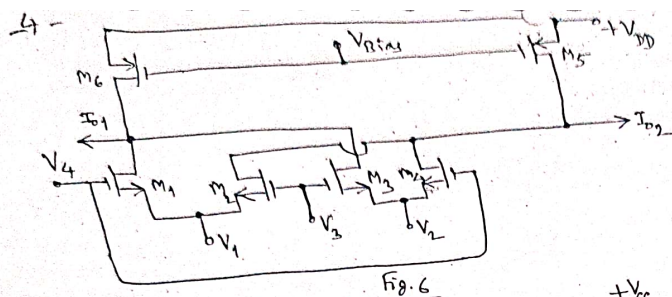 4-
V_Bias
+V_DD
M6
M5
I_D1
I_D2
V4
M1
M2
M3
M4
V1
V3
V2
Fig. 6
+V_CC